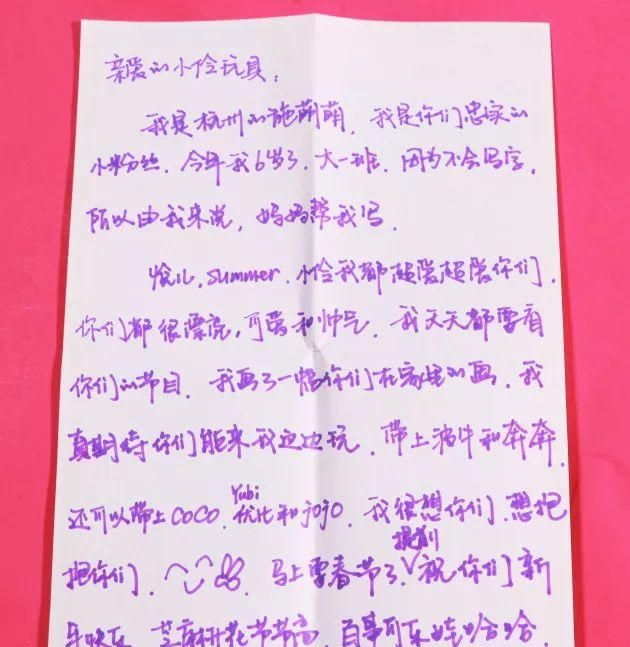 亲爱的小伶玩具：
我是杭州的施萌萌，我是你们忠实的
小粉丝。今年我6岁了，大一班，因为不会写字，
所以由我来说，妈妈帮我写。
悦儿，summer，小伶我都超爱超爱你们，
你们都很漂亮，可爱和帅气。我天天都要看
你们的节目。我画了一幅你们在家里的画。我
真期待你们能来我这边玩。带上蜗牛和奔奔，
Yubi
还可以带上COCO，优比和jojo。我很想你们，想抱
提前
抱你们。马上要春节了，祝你们新
年快乐，芝麻开花节节高，百事可乐娃哈哈。